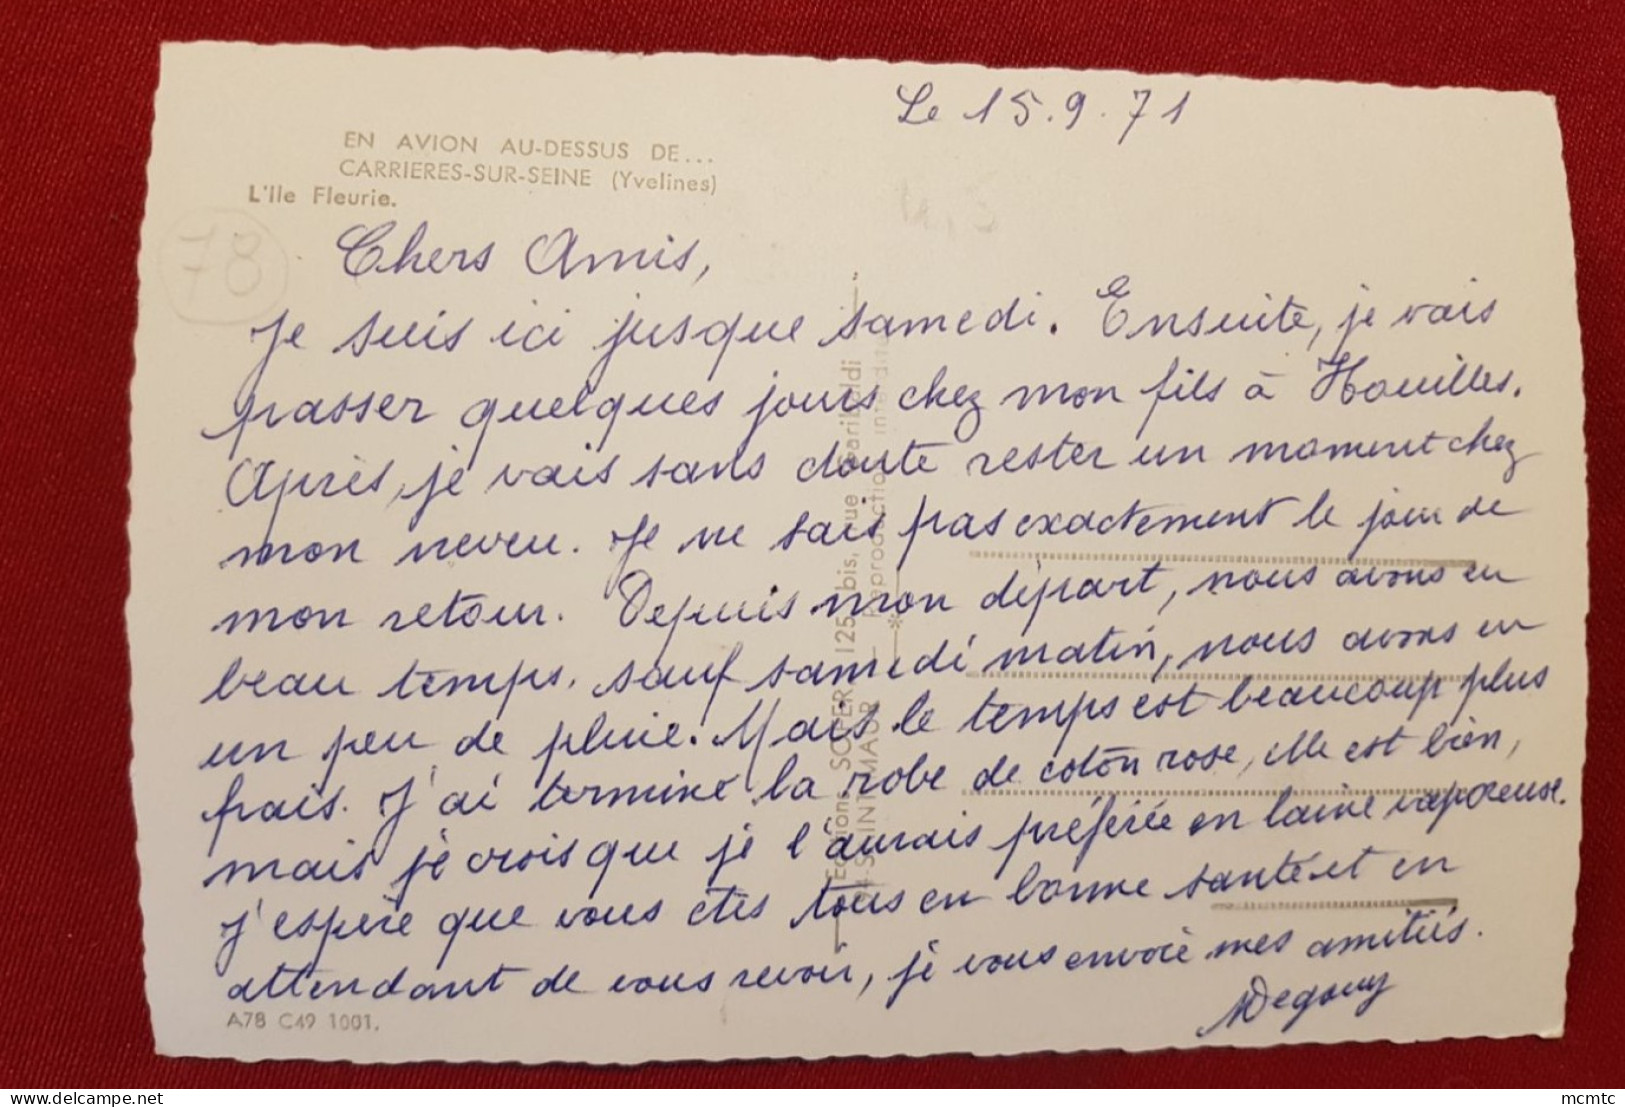 Le 15.9.71
EN AVION AU-DESSUS DE...
CARRIERES-SUR-SEINE (Yvelines)
L'Ile Fleurie.
78
Chers Amis,
Je suis ici jusque samedi. Ensuite, je vais
passer quelques jours chez mon fils à Houilles.
Après, je vais sans doute rester un moment chez
mon neveu. Je ne sais pas exactement le jour de
mon retour. Depuis mon départ, nous avons eu
beau temps. sauf samedi matin, nous avons eu
un peu de pluie. Mais le temps est beaucoup plus
frais. J'ai terminé la robe de coton rose, elle est bien,
mais je crois que je l'aurais préférée en laine vaporeuse.
J'espère que vous êtes tous en bonne santé et en
attendant de vous revoir, je vous envoie mes amitiés.
Degouy
A78 C49 1001.
Editions SOFER, 125 bis, rue Garibaldi
94-SAINT-MAUR — Reproduction interdite
mcmtc